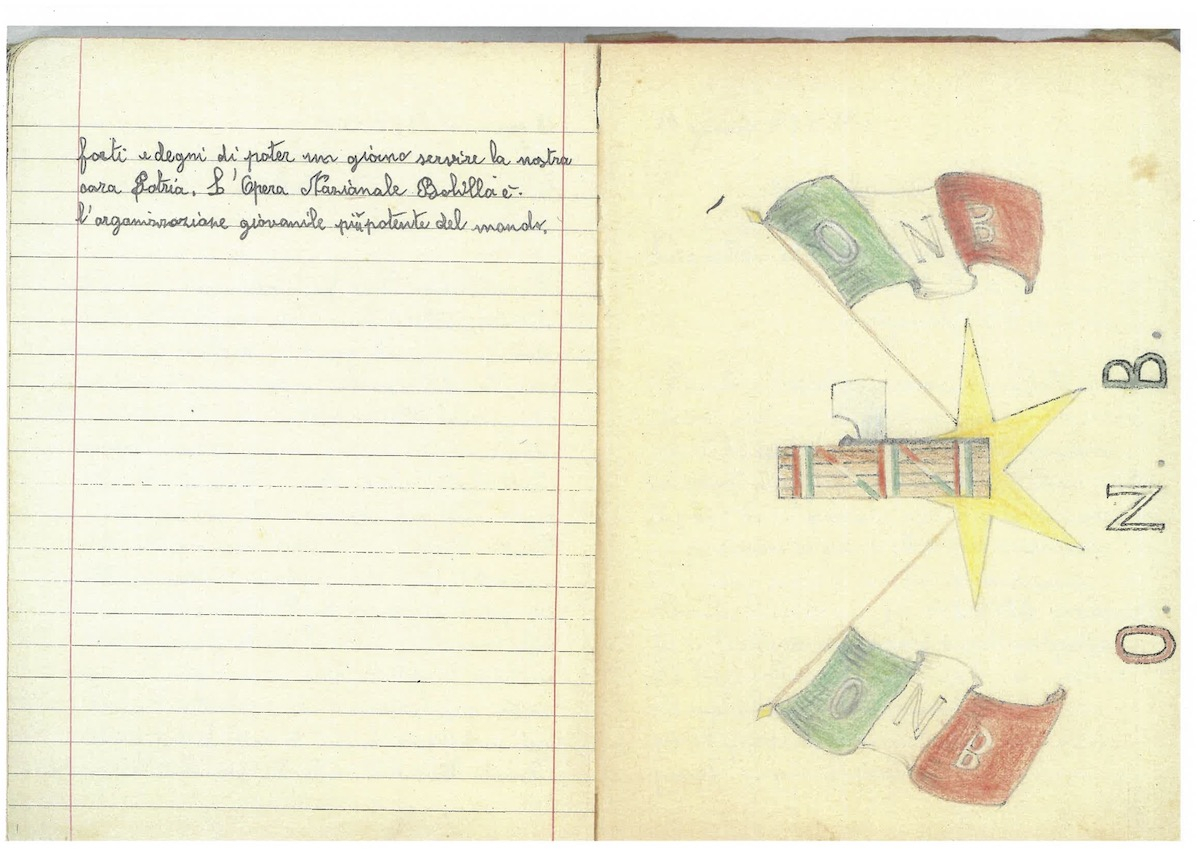 forti e degni di poter un giorno servire la nostra
cara Patria. L'Opera Nazionale Balilla è.
l'organizzazione giovanile più potente del mondo.
O N B
O N B
O. N. B.